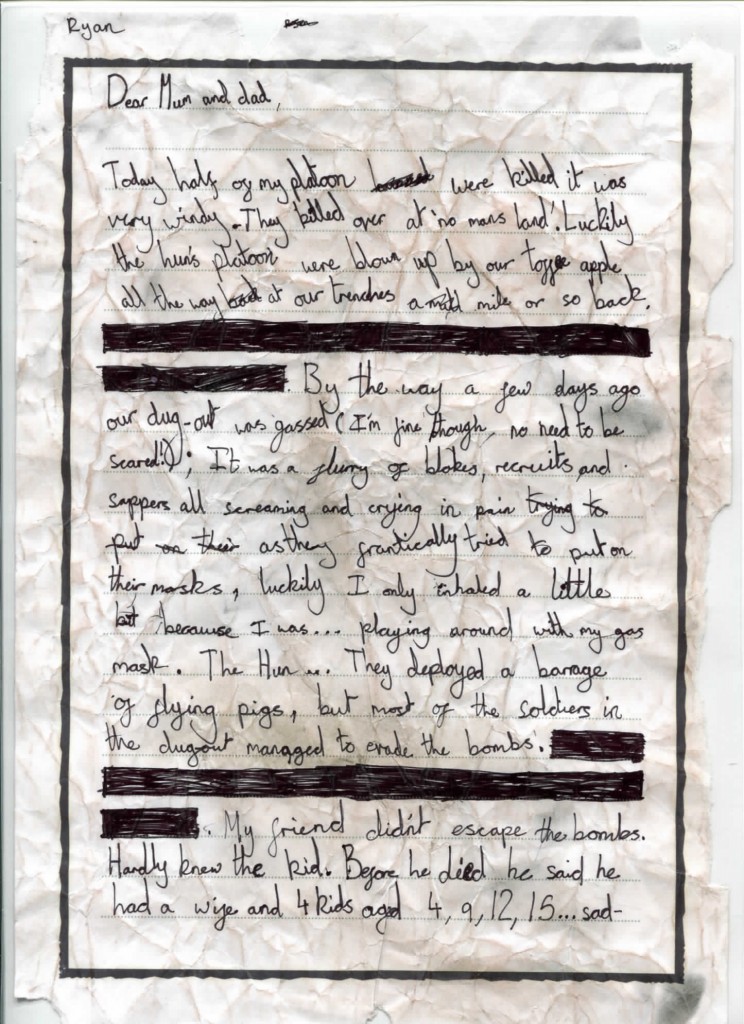 Ryan
Dear Mum and dad,
Today half of my platoon were killed it was
very windy. They killed over at 'no mans land'. Luckily
the hun's platoon were blown up by our toffee apple
all the way at our trenches a mile or so back.
. By the way a few days ago
our dug-out was gassed (I'm fine though, no need to be
scared!); It was a flurry of blokes, recruits, and
sappers all screaming and crying in pain trying to
put on their as they frantically tried to put on
their masks, luckily I only inhaled a little
bit because I was... playing around with my gas
mask. The Hun... They deployed a barrage
of flying pigs, but most of the soldiers in
the dug-out managed to evade the bombs.
. My friend didn't escape the bombs.
Hardly knew the kid. Before he died he said he
had a wife and 4 kids aged 4, 9, 12, 15... sad-